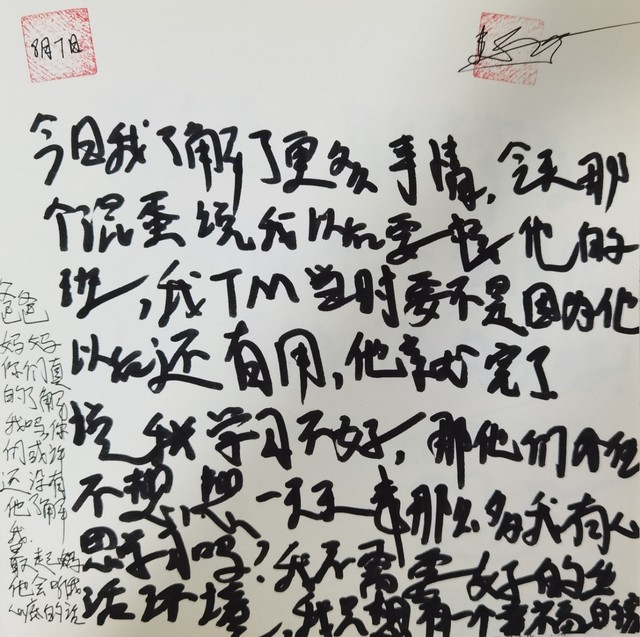 8月7日
今日我了解了更多事情,今天那
个混蛋说我以后要接他的
班,我TM当时要不是因为他
以后还有用,他就完了
说我学习不好,那他们不
不想想一天天事那么多我有心
思学习吗?我不需要好的生
活环境,我只想有一个幸福的
爸爸
妈妈
你们真
的了解
我吗你
们或许
还没有
他了解
我.
最起码
他会听我
心底的话